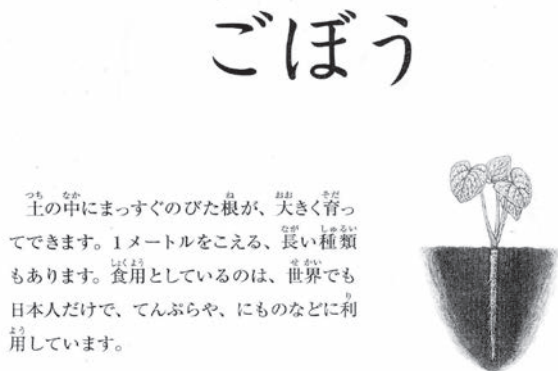 ごぼう
土の中にまっすぐのびた根が、大きく育っ
てできます。1メートルをこえる、長い種類
もあります。食用としているのは、世界でも
日本人だけで、てんぷらや、にものなどに利
用しています。